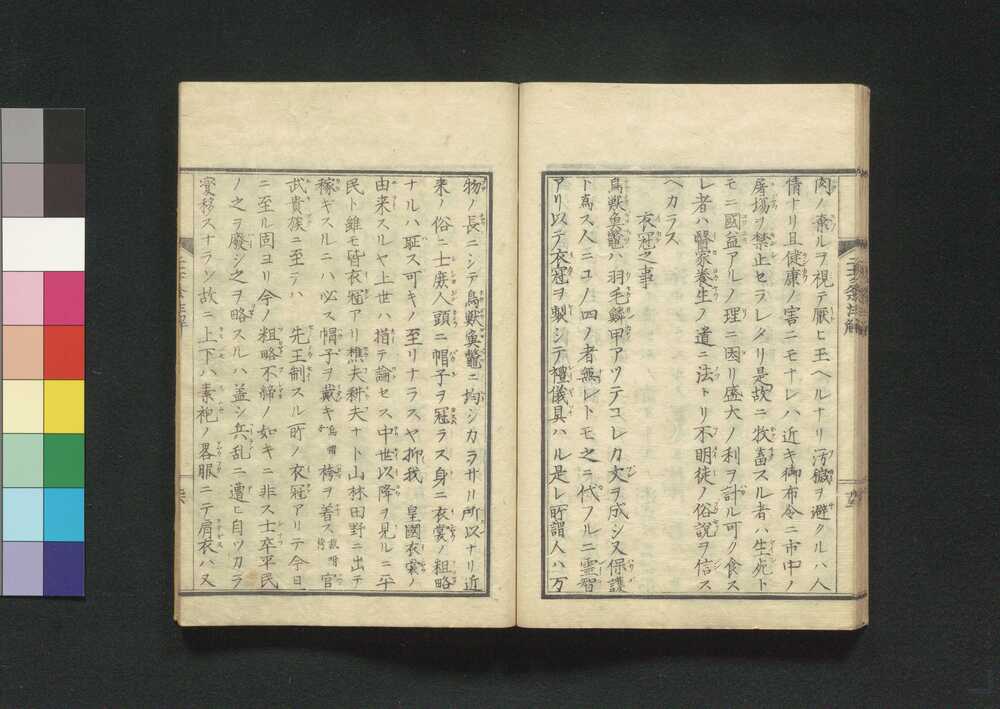 肉ノ棄ルヲ視テ厭ヒ玉ヘルナリ汚穢ヲ避クルハ人
情ナリ且健康ノ害ニモナレハ近キ御布令ニ市中ノ
屠場ヲ禁止セラレタリ是故ニ牧畜スル者ハ生死ト
モニ國益アルノ理ニ因リ盛大ノ利ヲ計ル可ク食ス
レ者ハ醫家養生ノ道ニ法トリ不明徒ノ俗説ヲ信ス
ヘカラス
衣冠之事
鳥獣魚鼈ハ羽毛鱗甲アツテコレカ文ヲ成シ又保護
ト為ス人ニコノ四ノ者無レトモ之ニ代フルニ霊智
アリ以テ衣冠ヲ製シテ禮儀具ハル是レ所謂人ハ万
物ノ長ニシテ鳥獣魚鼈ニ均シカラサリ所以ナリ近
来ノ俗ニ士庶人頭ニ帽子ヲ冠ラス身ニ衣裳ノ粗略
ナルハ耻ス可キノ至リナラスヤ抑我 皇國衣裳ノ
由来スルヤ上世ハ措テ論セス中世以降ヲ見ルニ平
民ト雖モ皆衣冠アリ樵夫耕夫ナト山林田野ニ出テ
稼キスルニハ必ス帽子ヲ戴キ烏帽子袴ヲ着ス 官
武貴族ニ至テハ 先王制スル所ノ衣冠アリテ今日
ニ至ル固ヨリ今ノ粗略不締ノ如キニ非ス士卒平民
ノ之ヲ廢シ之ヲ略スルハ盖シ兵乱ニ遭ヒ自ツカラ
變移スナラン故ニ上下ハ素袍ノ畧服ニテ肩衣ハ又